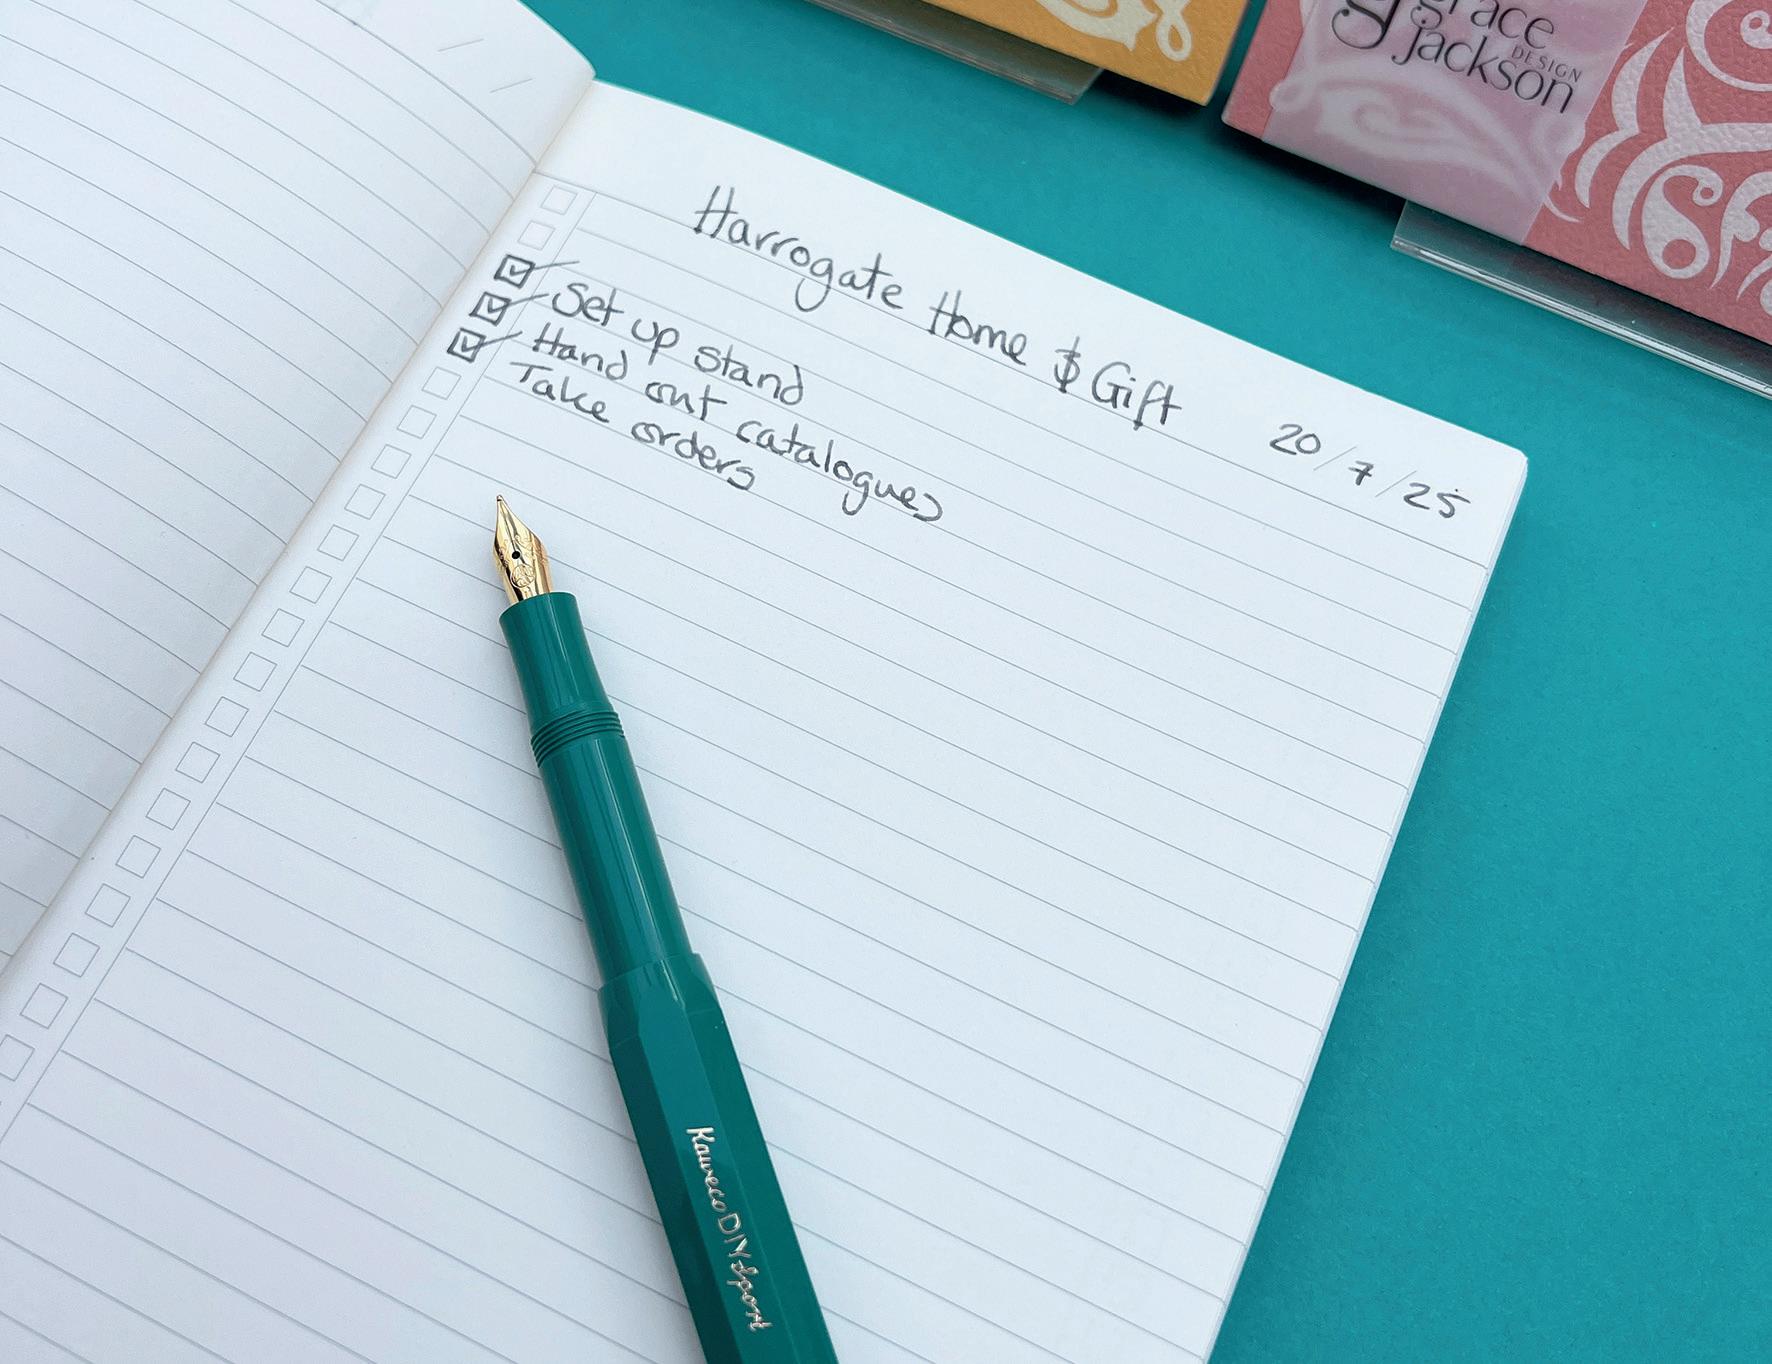 grace
jackson
DESIGN
Harrogate Home & Gift 20/7/25
Set up stand
Hand out catalogues
Take orders
Kaweco DIY Sport